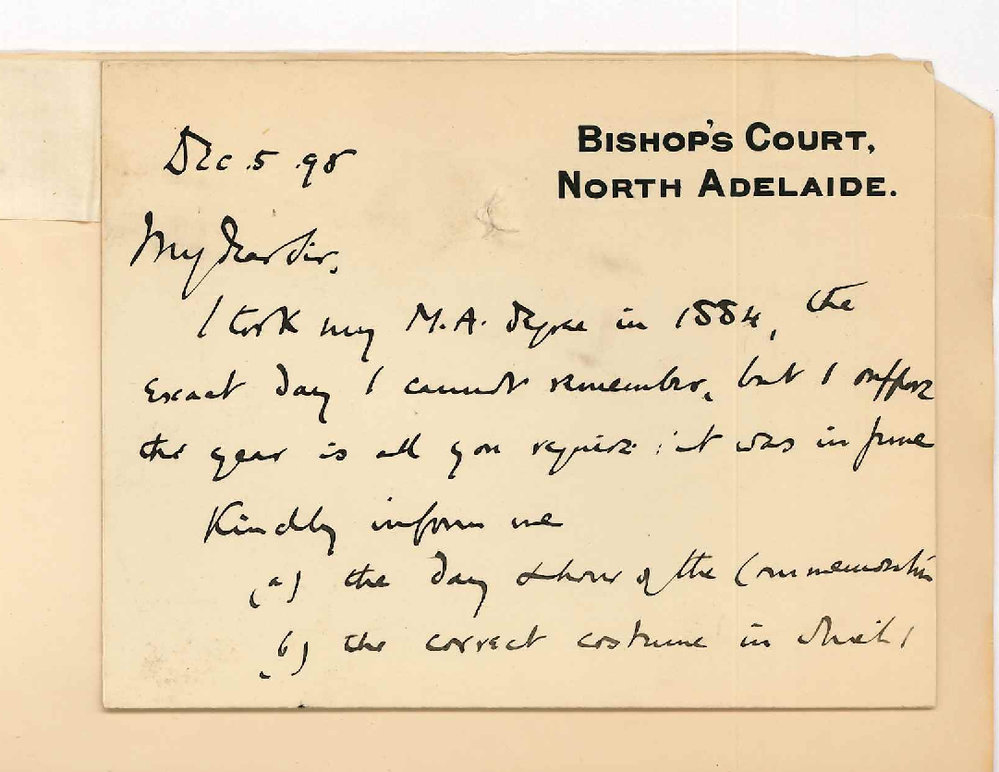 BISHOP'S COURT,
NORTH ADELAIDE.
Dec. 5. 95
My dear Sir,
I took my M.A. degree in 1884, the
exact day I cannot remember, but I suppose
the year is all you require: it was in June
Kindly inform me
(a) the day & hour of the Commemoration
(b) the correct costume in which I